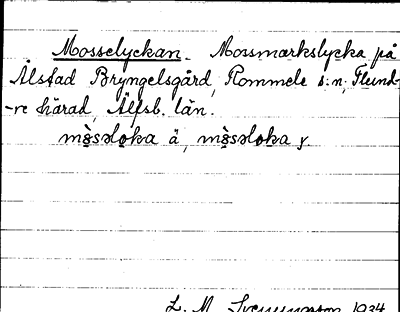 Mosselyckan. Mossmarkslycka på
Ålstad Bryngelsgård, Rommele s:n, Flund-
-re härad, Älfsb. län.
mòsəloka ä, mòsəloka y.
L. M. Svenungsson 1934